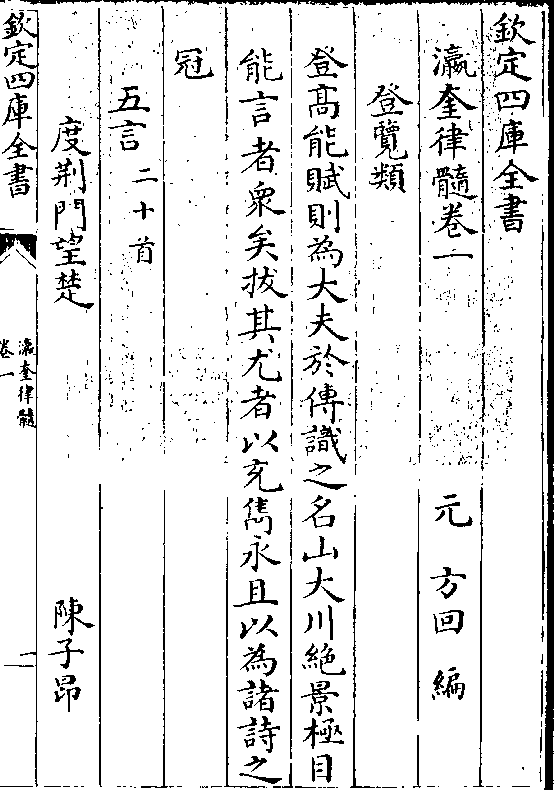 欽定四庫全書
瀛奎律髓卷一 元 方回 編
登覽類
登髙能賦則為大夫於傳識之名山大川絶景極目
能言者衆矣拔其尤者以充雋永且以為諸詩之
冠
五言 二十首
度荆門望楚 陳子昂
欽定四庫全書
瀛奎律髓
卷一
一